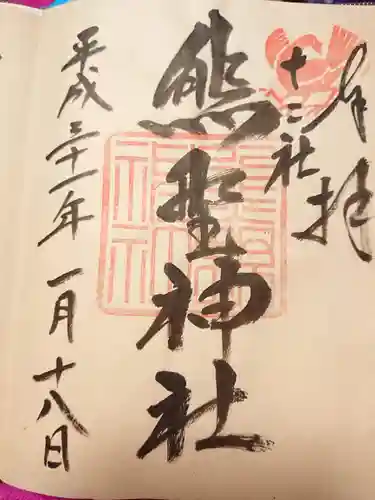 奉拝
十二社
熊野神社
平成三十一年一月十八日
熊野神社